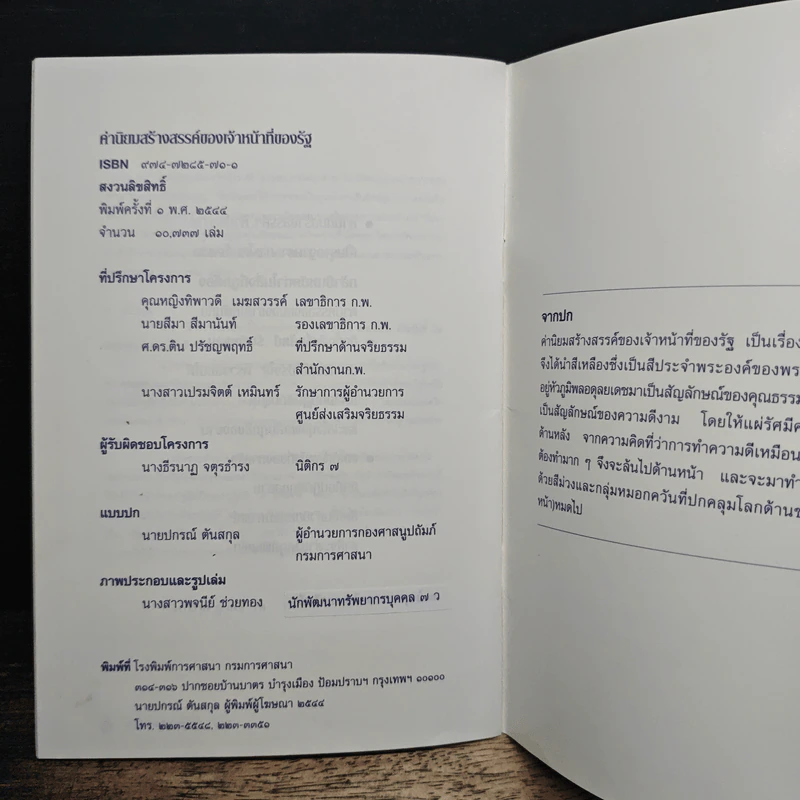 ค่านิยมสร้างสรรค์ของเจ้าหน้าที่ของรัฐ
ISBN ๙๗๔-๗๒๔๕-๗๑-๑
สงวนลิขสิทธิ์
พิมพ์ครั้งที่ ๑ พ.ศ. ๒๕๔๔
จำนวน ๑๐,๗๓๗ เล่ม
ที่ปรึกษาโครงการ
คุณหญิงทิพาวดี เมฆสวรรค์ เลขาธิการ ก.พ.
นายสีมา สีมานันท์ รองเลขาธิการ ก.พ.
ศ.ดร.ติน ปรัชญพฤทธิ์ ที่ปรึกษาด้านจริยธรรม
สำนักงานก.พ.
นางสาวเปรมจิตต์ เหมินทร์ รักษาการผู้อำนวยการ
ศูนย์ส่งเสริมจริยธรรม
ผู้รับผิดชอบโครงการ
นางธีรนาฏ จตุรธำรง นิติกร ๗
แบบปก
นายปกรณ์ ตันสกุล ผู้อำนวยการกองศาสนูปถัมภ์
กรมการศาสนา
ภาพประกอบและรูปเล่ม
นางสาวพจนีย์ ช่วยทอง นักพัฒนาทรัพยากรบุคคล ๗ ว
พิมพ์ที่ โรงพิมพ์การศาสนา กรมการศาสนา
๓๑๔-๓๑๖ ปากซอยบ้านบาตร บำรุงเมือง ป้อมปราบฯ กรุงเทพฯ ๑๐๑๐๐
นายปกรณ์ ตันสกุล ผู้พิมพ์ผู้โฆษณา ๒๕๔๔
โทร. ๒๒๓-๕๕๔๘, ๒๒๓-๓๓๕๑
จากปก
ค่านิยมสร้างสรรค์ของเจ้าหน้าที่ของรัฐ เป็นเรื่อง
จึงได้นำสีเหลืองซึ่งเป็นสีประจำพระองค์ของพร
อยู่หัวภูมิพลอดุลยเดชมาเป็นสัญลักษณ์ของคุณธรรม
เป็นสัญลักษณ์ของความดีงาม โดยให้แผ่รัศมีค
ด้านหลัง จากความคิดที่ว่าการทำความดีเหมือน
ต้องทำมาก ๆ จึงจะล้นไปด้านหน้า และจะมาทำ
ด้วยสีม่วงและกลุ่มหมอกควันที่ปกคลุมโลกด้านข
หน้า)หมดไป